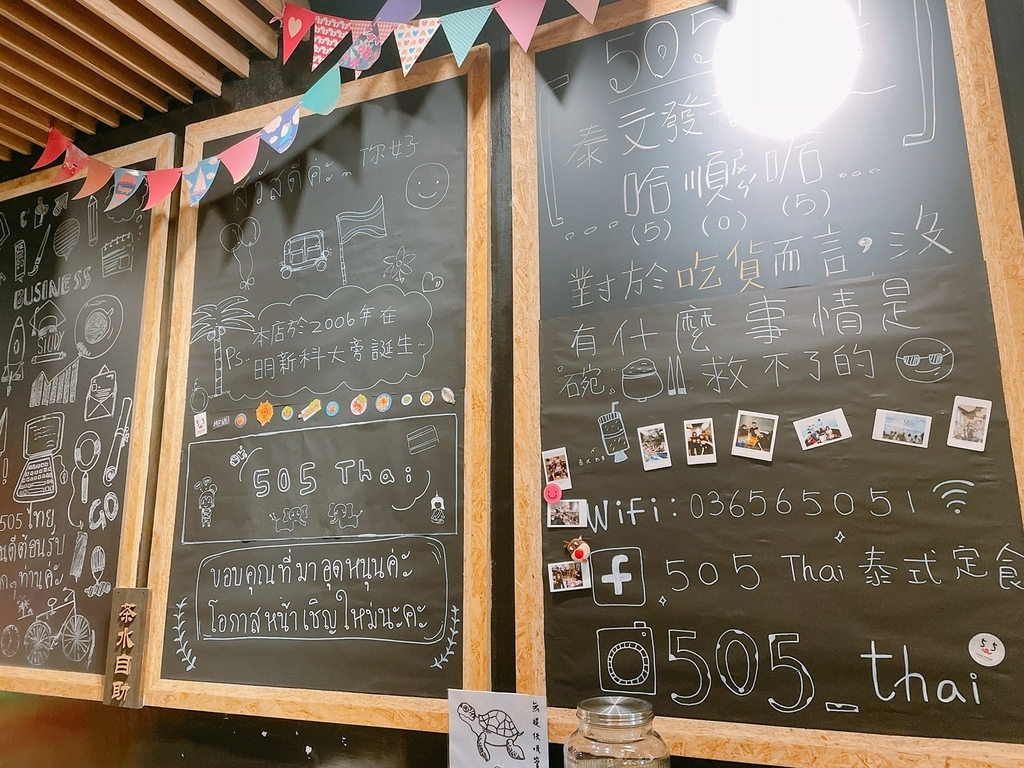 BUSINESS
GO
505 ไทย
茶水自助
สวัสดีค่ะ
你好
本店於2006年在
Ps.. 明新科大旁誕生~
MENU
505 Thai
ขอบคุณที่มาอุดหนุนค่ะ
โอกาสหน้าเชิญใหม่นะคะ
505
泰文發
哈順呢...
(5) (0) (5)
對於吃貨而言,沒
有什麼事情是
碗。救不了的
Wifi: 036565051
f 505 Thai 泰式定食
505_thai